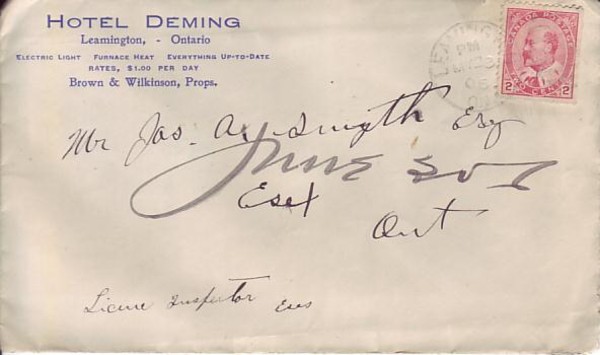 HOTEL DEMING
Leamington, - Ontario
ELECTRIC LIGHT FURNACE HEAT EVERYTHING UP-TO-DATE
RATES, $1.00 PER DAY
Brown & Wilkinson, Props.
LEAMINGTON
PM
06
ONT
CANADA POSTAGE
2 TWO CENTS 2
Mr Jas. A. Smyth Esq
June
Esex
Ont
License Inspector